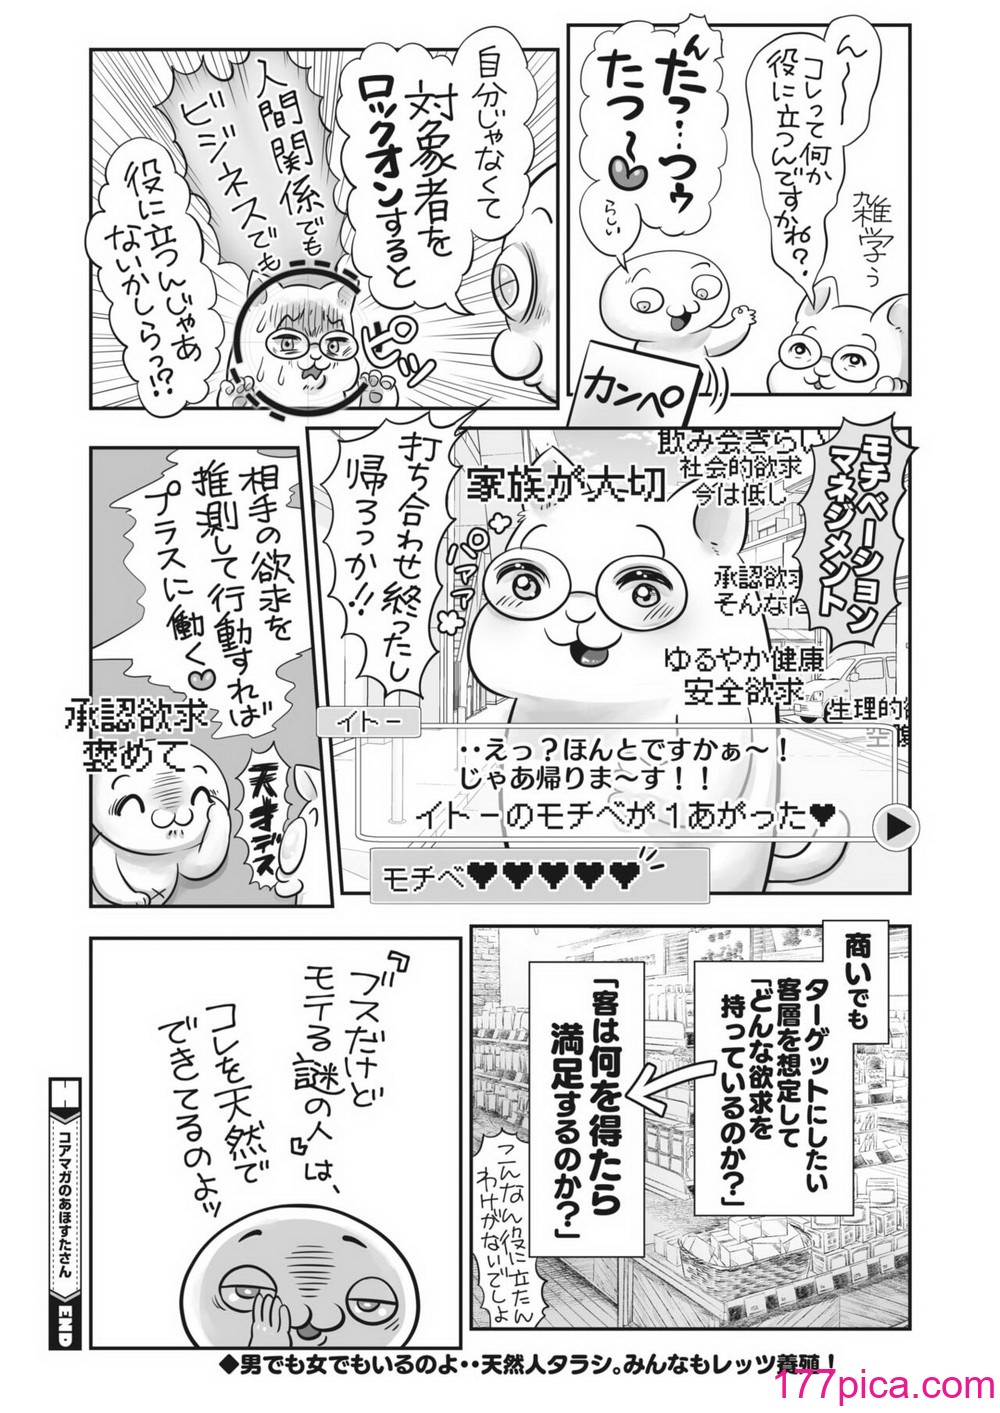 ん〜
コレって何か
役に立つんですかね?
雑学ぅ
んたっ…つぅ
たつ〜
らしい
カンペ
自分じゃなくて
対象者を
ロックオンすると
人間関係でも
ビジネスでも
役に立つんじゃあ
ないかしらっ!?
ピピッ
モチベーション
マネジメント
飲み会きらい
社会的欲求
今は低し
家族が大切
承認欲求
そんなに
ゆるやか健康
安全欲求
生理的欲
空腹
打ち合わせ終ったし
帰ろっか!!
パァァ
イトー
‥えっ?ほんとですかぁ〜!
じゃあ帰りま〜す!!
イトーのモチベが1あがった♥
▶
モチベ♥♥♥♥♥
相手の欲求を
推測して行動すれば
プラスに働く♡
承認欲求
褒めて
天才デス
商いでも
ターゲットにしたい
客層を想定して
「どんな欲求を
持っているのか?」
「客は何を得たら
満足するのか?」
こんなん役に立たん
わけがないでしょ
『ブスだけど
モテる謎の人』は、
コレを天然で
できてるのよッ
コアマガのあほすたさん
END
◆男でも女でもいるのよ‥天然人タラシ。みんなもレッツ養殖!
177pica.com